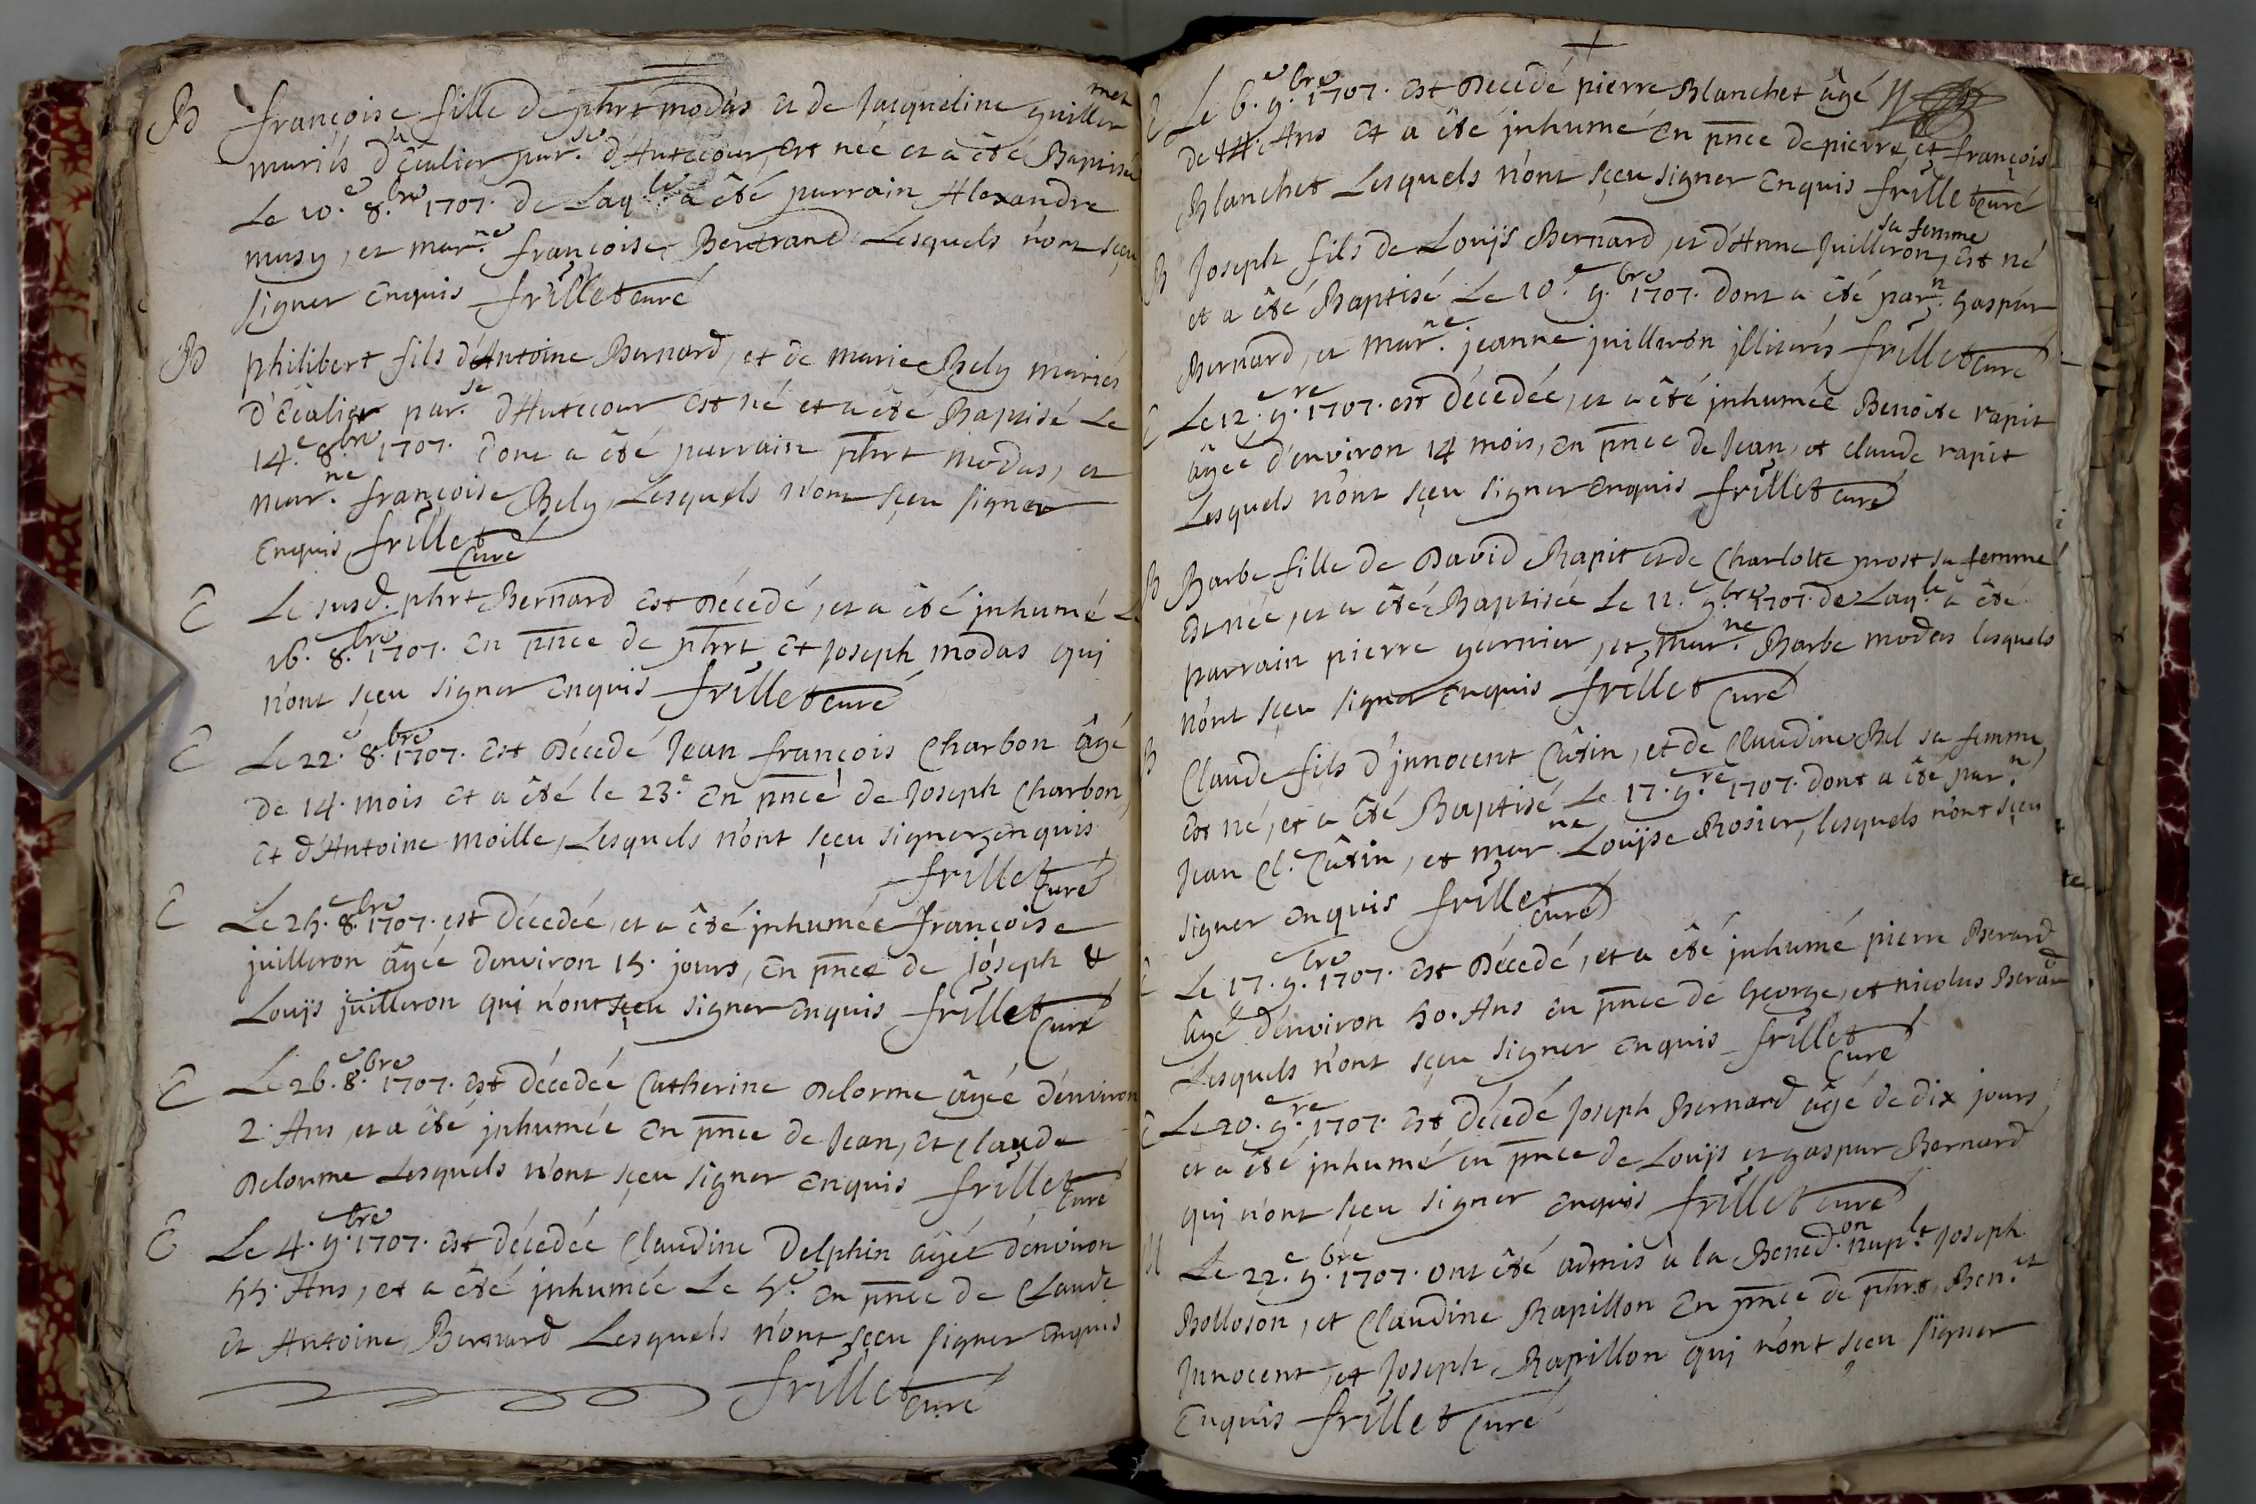 B françoise fille de phrt modas et de Jacqueline guillermet
mariés d'Écalier par.se d'Hutecour, est née et a été Baptisée
Le 10.e 8.bre 1707. de Laq.le a été parrain Alexandre
musy, et mar.ne françoise Bertrand Lesquels n'ont sçeu
signer Enquis frillet curé
B philibert fils d'Antoine Bernard, et de marie Bely mariés
d'Écalier par.se d'Hutecour est né et a été Baptisé Le
14.e 8bre 1707. dont a été parrain phrt modas, et
mar.ne françoise Bely, Lesquels n'ont sçeu signer
Enquis frillet curé
E Le susd. phrt Bernard est décedé, et a été inhumé Le
16.e 8.bre 1707. en pnce de phrt et Joseph modas qui
n'ont sçeu signer enquis frillet curé
E Le 22.e 8.bre 1707. est décedé Jean françois Charbon âgé
de 14. mois et a été le 23.e en pnce de Joseph Charbon,
et d'Antoine moille, Lesquels n'ont sçeu signer enquis
frillet curé
E Le 25.e 8.bre 1707. est décedée, et a été inhumée françoise
juilleron âgée denviron 15. jours, en pnce de joseph et
Louys juilleron qui n'ont sçeu signer enquis frillet curé
E Le 26.e 8.bre 1707. est décedée Catherine delorme âgée d'environ
2. Ans, et a été inhumée en pnce de Jean, et claude
delorme Lesquels n'ont sçeu signer enquis frillet curé
E Le 4.e 9.bre 1707. est décedée Claudine Delphin âgée d'environ
55. Ans, et a été inhumée Le 5.e en pnce de Claude
et Antoine Bernard Lesquels n'ont sçeu signer enquis
frillet curé
E Le 6.e 9.bre 1707. est décedé pierre Blanchet âgé
de Ans et a été inhumé en pnce de pierre, et françois
Blanchet Lesquels n'ont sçeu signer enquis frillet curé
B Joseph fils de Louys Bernard, et d'Anne Juilleron, sa femme est né
et a été Baptisé Le 10.e 9.bre 1707. dont a été par.n gaspar
Bernard, et mar.ne jeanne juilleron illiterés frillet curé
E Le 12.e 9.re 1707. est décedée, et a été inhumée Benoite rapit
âgée d'environ 14 mois, en pnce de Jean, et claude rapit
Lesquels n'ont sçeu signer enquis frillet curé
B Barbe fille de David Rapit et de Charlotte prost sa femme
est née, et a été Baptisée Le 12.e 9.bre 1707. de Laq.le a été
parrain pierre garnier, et mar.ne Barbe modas lesquels
n'ont sçeu signer enquis frillet curé
B Claude fils d'jnnocent Cûtin, et de Claudine Bel sa femme,
est né, et a été Baptisé Le 17.e 9.re 1707. dont a été par.n
Jean Cl.e Cûtin, et mar.ne Louyse Rosier, lesquels n'ont sçeu
signer enquis frillet curé
E Le 17.e 9.bre 1707. est décedé, et a été inhumé pierre Berard
âgé d'environ 50. Ans en pnce de George, et nicolas Berard
Lesquels n'ont sçeu signer enquis frillet curé
E Le 20.e 9.re 1707. est décedé Joseph Bernard âgé de dix jours
et a été inhumé en pnce de Louys et gaspar Bernard
qui n'ont sçeu signer enquis frillet curé
M Le 22.e 9.bre 1707. ont été admis à la Bened.on nup.le Joseph
Bolloson, et Claudine Rapillon en pnce de phrt, Ben.et
Jnnocent, et Joseph Rapillon qui n'ont sçeu signer
Enquis frillet curé